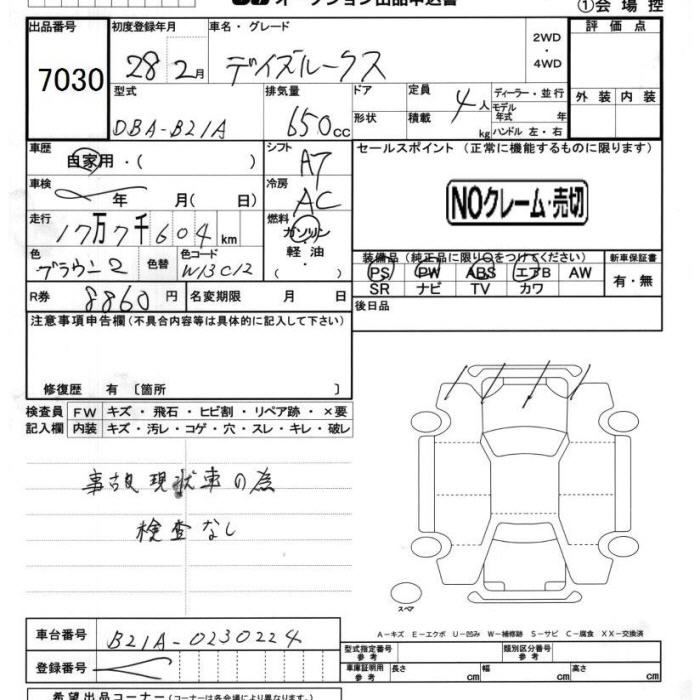 オークション出品申込書
①会場控
出品番号 初度登録年月 車名・グレード 2WD・4WD 評価点
7030 28年2月 デイズルークス
型式 排気量 ドア 定員 4人 ディーラー・並行 外装 内装
DBA-B21A 650cc 形状 積載 kg モデル年式 年 ハンドル 左・右
車歴 自家用・( ) シフト A7 セールスポイント (正常に機能するものに限ります)
車検 年 月( 日) 冷房 AC
NOクレーム・売切
走行 17万7千604km 燃料 ガソリン
軽油
( )
色 ブラウン2 色替 色コード W13C12
装備品 (純正品に限り○をつけてください) 新車保証書
PS PW ABS エアB AW 有・無
SR ナビ TV カワ
R券 8860円 名変期限 月 日 後日品
注意事項申告欄(不具合内容等は具体的に記入して下さい)
修復歴 有 〔箇所 〕
検査員 FW キズ・飛石・ヒビ割・リペア跡・×要
記入欄 内装 キズ・汚レ・コゲ・穴・スレ・キレ・破レ
事故現状車の為
検査なし
スペア
A-キズ E-エクボ U-凹み W-補修跡 S-サビ C-腐食 XX-交換済
車台番号 B21A-0230224
型式指定番号 参考 類別区分番号 参考
登録番号
車庫証明用 参考 長さ cm 幅 cm 高さ cm
希望出品コーナー(コーナーは各会場により異なります。)